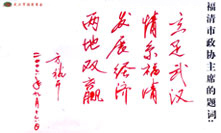 福清市政协主席的题词
立足武汉
情系福清
发展经济
两地双赢